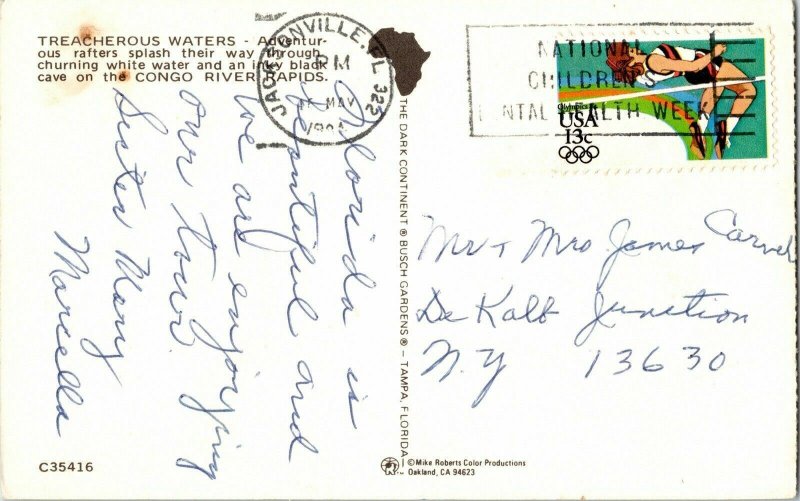 TREACHEROUS WATERS - Adventur-
ous rafters splash their way through
churning white water and an inky black
cave on the CONGO RIVER RAPIDS.
Florida is
beautiful and
we are enjoying
our tour.
Sister Mary
Marcella
C35416
THE DARK CONTINENT® BUSCH GARDENS® — TAMPA, FLORIDA
©Mike Roberts Color Productions
Oakland, CA 94623
JACKSONVILLE, FL 322
PM
MAY
NATIONAL
CHILDREN'S
MENTAL HEALTH WEEK
Olympics 84
USA
13c
Mr + Mrs James Carvel
De Kalb Junction
N.Y 13630